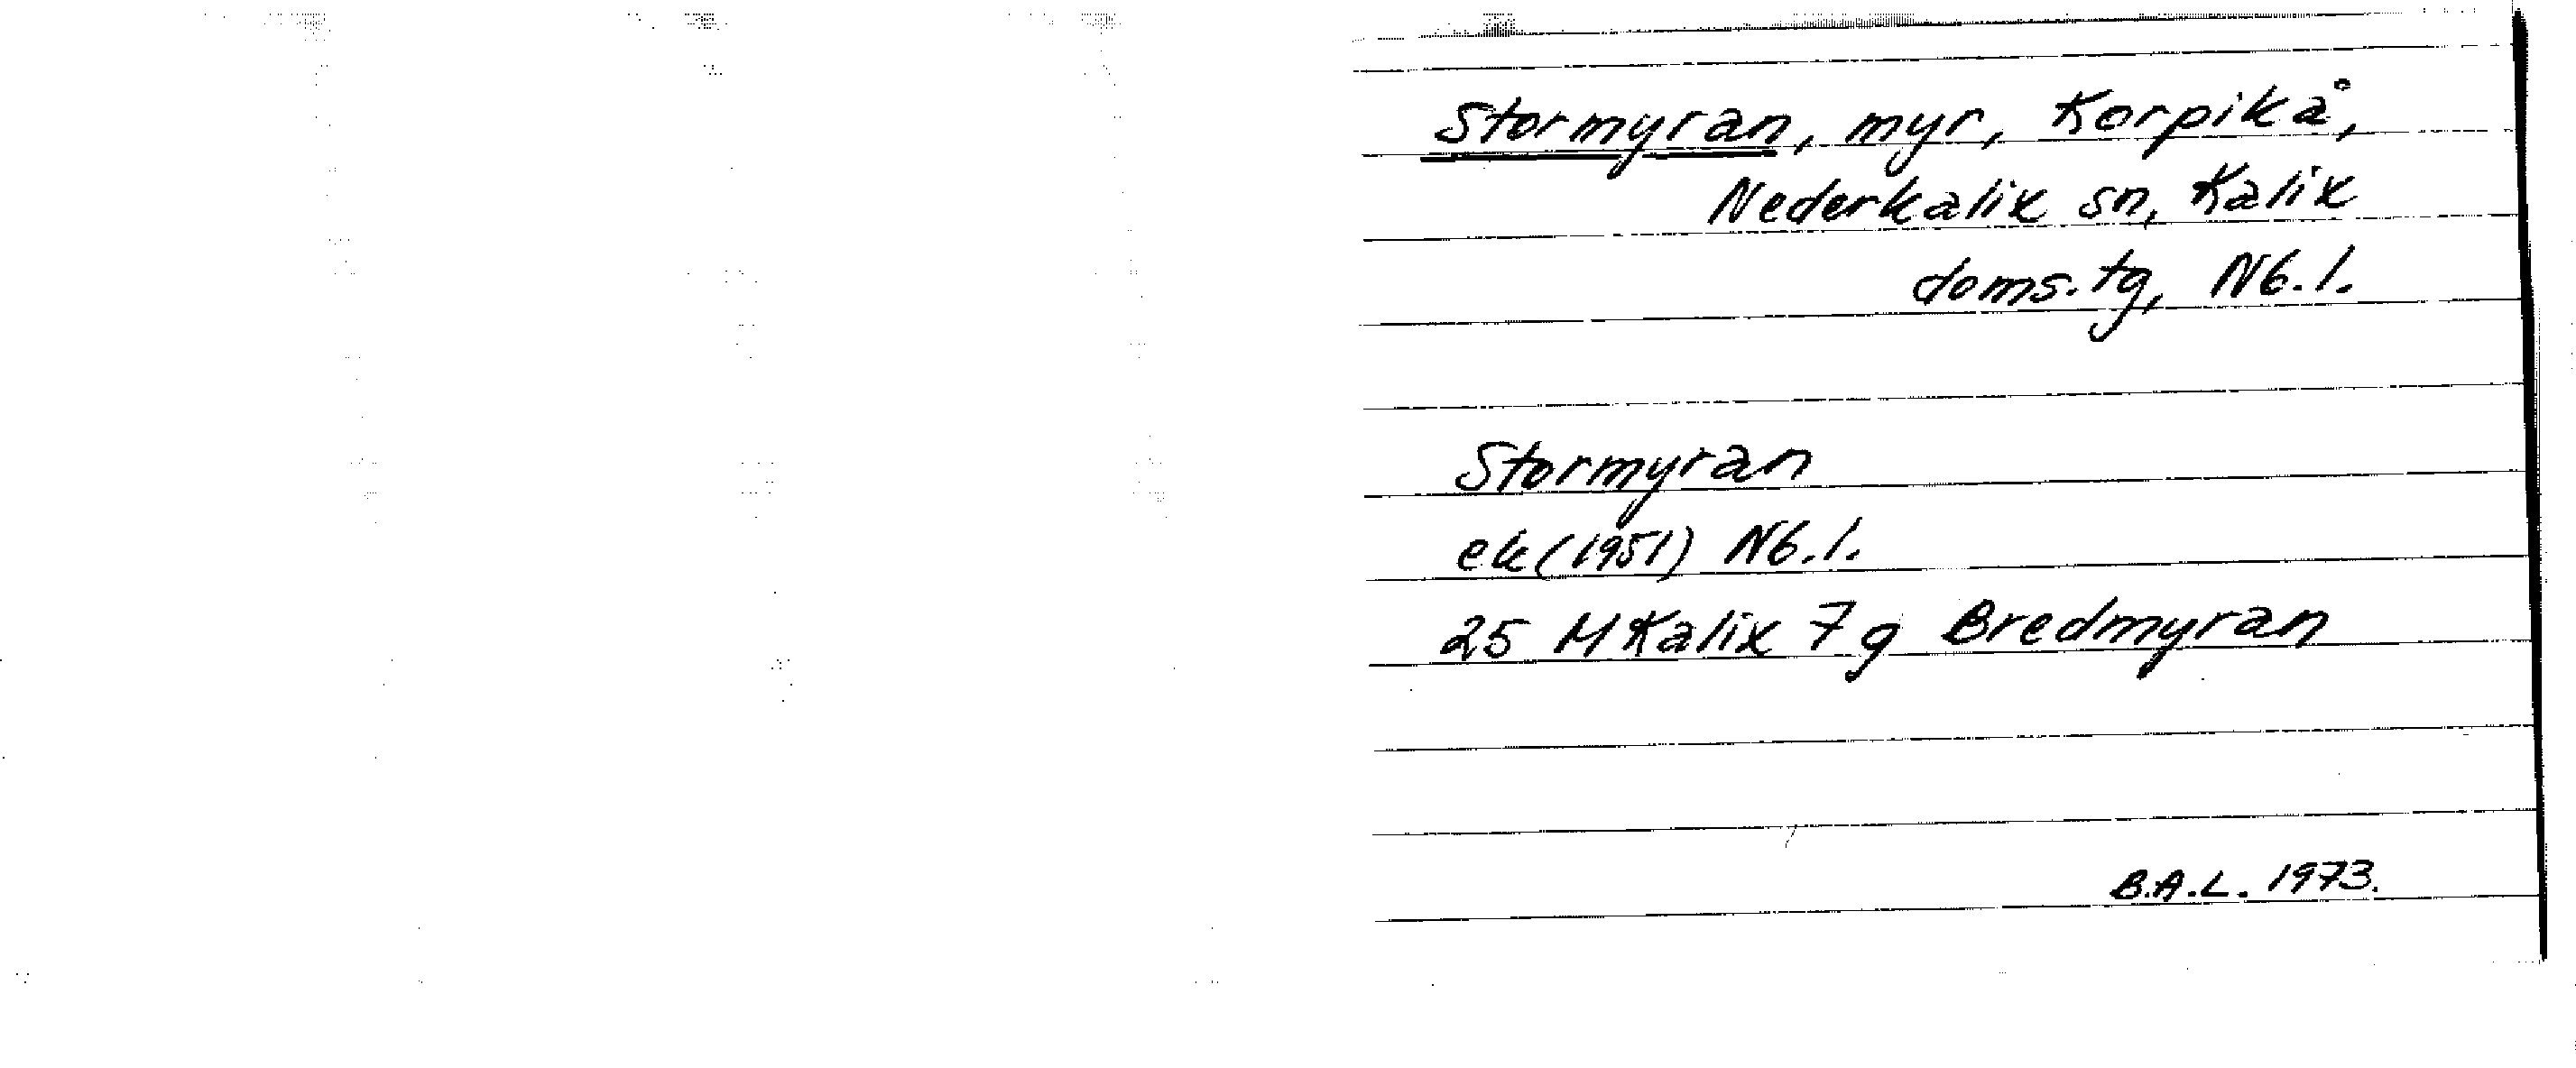 Stormyran, myr, Korpikå,
Nederkalix sn, Kalix
doms.tg, Nb.l.
Stormyran
ek(1951) Nb.l.
25 M Kalix 7 g Bredmyran
B.A.L. 1973.